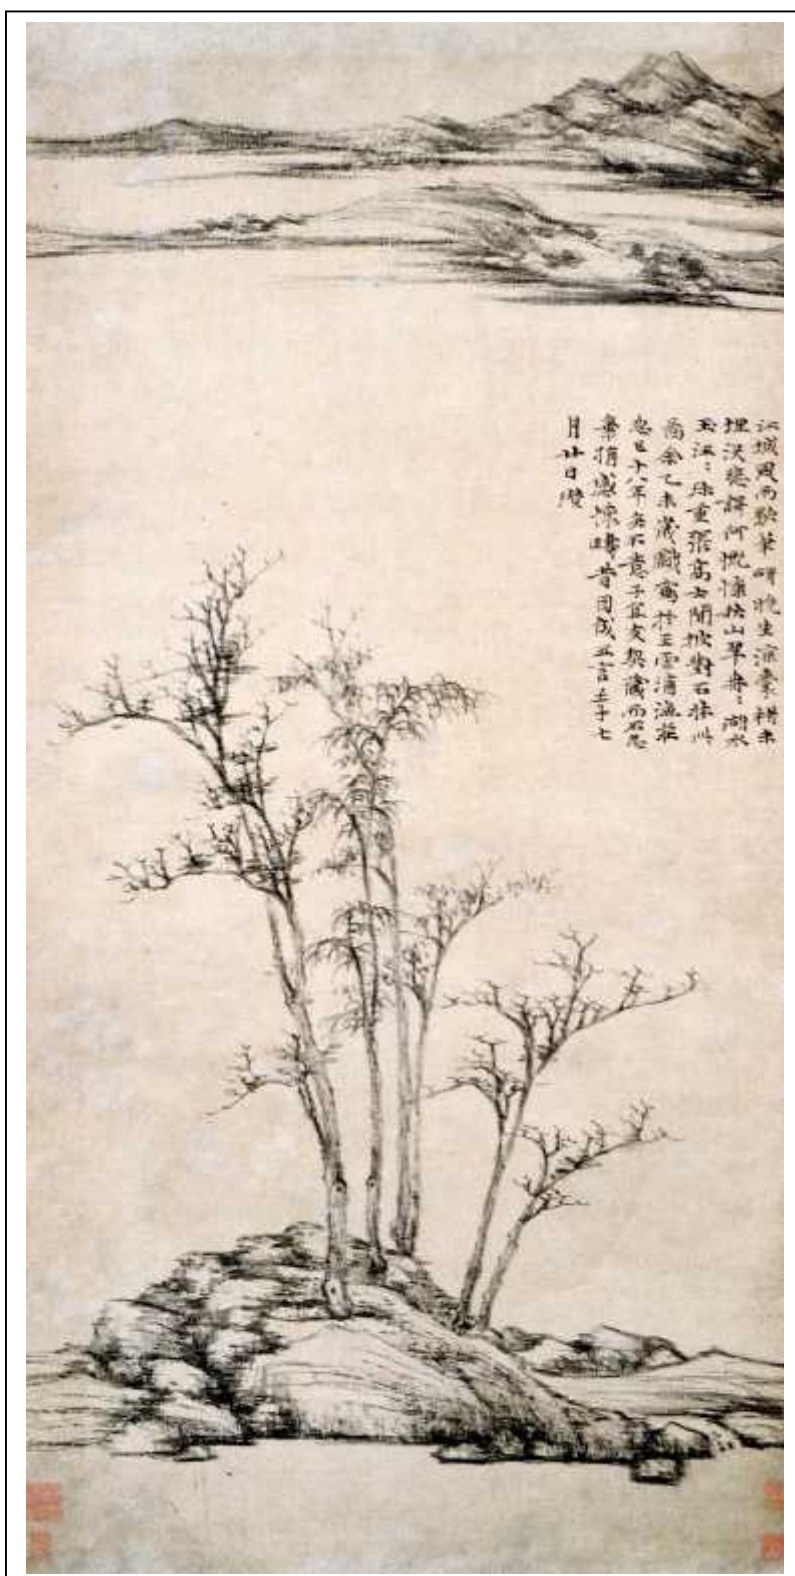 江城風雨歇筆研晚生涼囊楮未
埋沒悲歌何慨慷秋山翠冉〻湖水
玉汪〻珎重張高士閒披對石牀此
圖余乙未歲戲寫於王雲浦漁莊
忽已十八年矣不意子宜友契藏而不忍
棄捐感懷疇昔因成五言壬子七
月廿日瓚